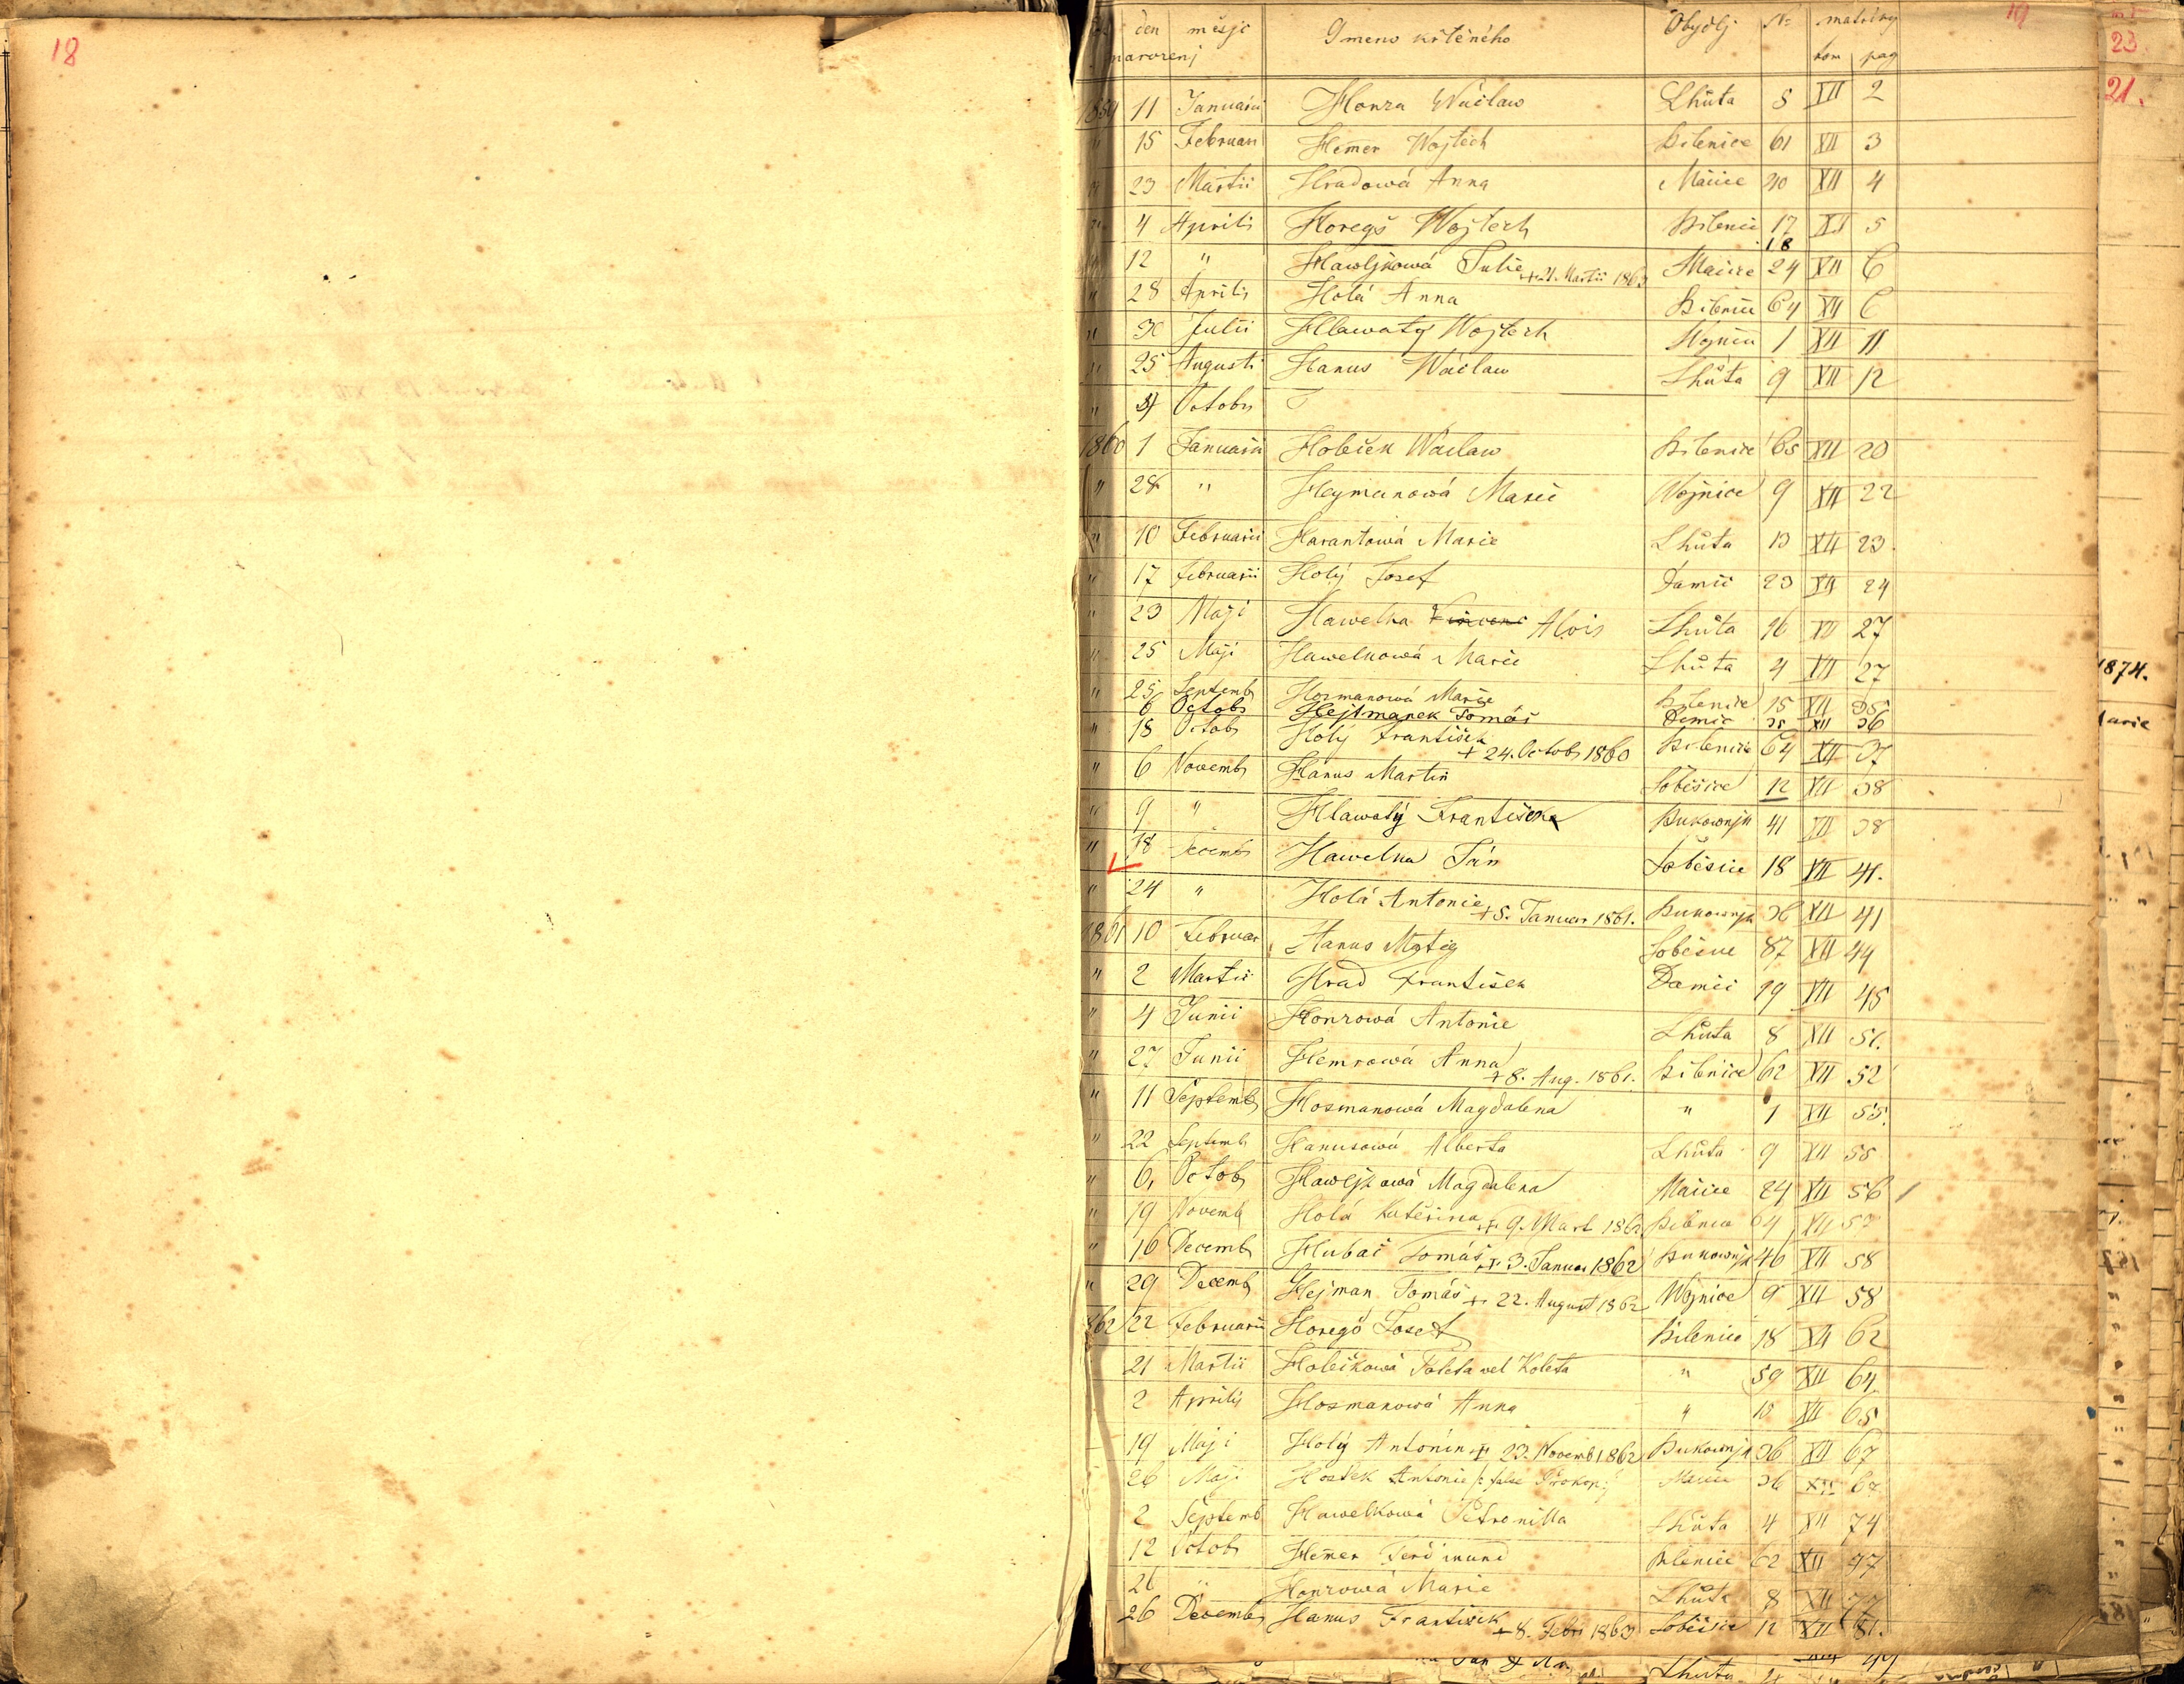 18
19
den měsjc Gmeno křtěného Obydlj No matriky
narozenj tom pag
1859 11 Januarii Honza Wáclaw Lhůta 5 XII 2
" 15 Februari Hemer Wojtěch Bilenice 61 XII 3
" 23 Martii Hradowá Anna Mačice 40 XII 4
" 4 Aprilis Horegš Wojtěch Bilenic 17 XII 5
18
" 12 " Hawljkowá Julie + 21. Martii 1863 Mačice 24 XII 6
" 28 Aprilis Holá Anna Bilenic 64 XII 6
" 30 Julii Hlawatý Wojtěch Wojnic 1 XII 11
" 25 Augusti Hanus Wáclaw Lhůta 9 XII 12
" Octobr
1860 1 Januarii Holeček Wáclaw Bilenice 65 XII 20
" 28 " Heymanowá Marie Wojnice 9 XII 22
" 10 Februarii Harantowá Marie Lhůta 13 XII 23.
" 17 Februarii Holý Josef Damic 23 XII 24
" 23 Maji Hawelka Vincenc Alois Lhůta 16 XII 27
" 25 Maji Hawelkowá Marie Lhůta 4 XII 27
" 25 Septemb Hosmanowá Marie Bilenice 15 XII 35
6 Octobr Hejtmanek Tomáš Damic XII 36
" 18 Octob Holý František + 24. Octob 1860 Bilenice 64 XII 37
" 6 Novemb Hanus Martin Soběšice 12 XII 38
" 9 " Hlawatý Františka Bukownjk 41 XII 38
" 18 Decemb Hawelka Ján Soběsice 18 XII 41.
" 24 " Holá Antonie + 5. Januar 1861. Bukownjk 36 XII 41
1861 10 Februar Hanus Matěg Soběsice 87 XII 44
" 2 Martii Hrad František Damici 19 XII 45
" 4 Junii Honzowá Antonie Lhůta 8 XII 51.
" 27 Junii Hemrowá Anna + 8. Aug. 1861. Bilenice 62 XII 52
" 11 Septemb Hosmanowá Magdalena " 1 XII 55.
" 22 Septemb Hanusowá Alberta Lhůta 9 XII 55
" 6. Octob Hawljkowá Magdalena Mačice 24 XII 56
" 19 Novemb Holá Kateřina + 9. Mart 1862 Bilenice 64 XII
" 16 Decemb Hubač Tomáš + 3. Januar 1862 Bukownjk 46 XII 58
" 29 Decemb Hejman Tomáš + 22. August 1862 Wojnice 9 XII 58
1862 22 Februarii Horegš Josef Bilenice 18 XII 62
21 Martii Holečkowá Koleta vel Koleta " 59 XII 64
2 Aprilis Hosmanowá Anna " XII 65
19 Maji Holý Antonin + 23. Novemb 1862 Bukownjk 36 XII 67
26 Maji Hošek Antonie /: false Prokop :/ Mačice 36 XII 67
2 Septemb Hawelkowá Petronilla Lhůta 4 XII 74
12 Octob Hemer Ferdinand Bilenice 62 XII 77
26 " Honzowá Marie Lhůta 8 XII 77
26 Decemb Hanus František + 8. Febr 1863 Soběsice 12 XII 81.
Lhůta
23
21.
1874.
Marie